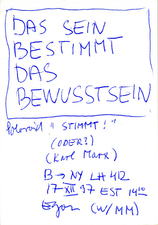 DAS SEIN
BESTIMMT
DAS
BEWUSSTSEIN
"STIMMT!"
(ODER?)
(Karl Marx)
B → NY LH 412
17 XII 97 EST 14
(W/MM)